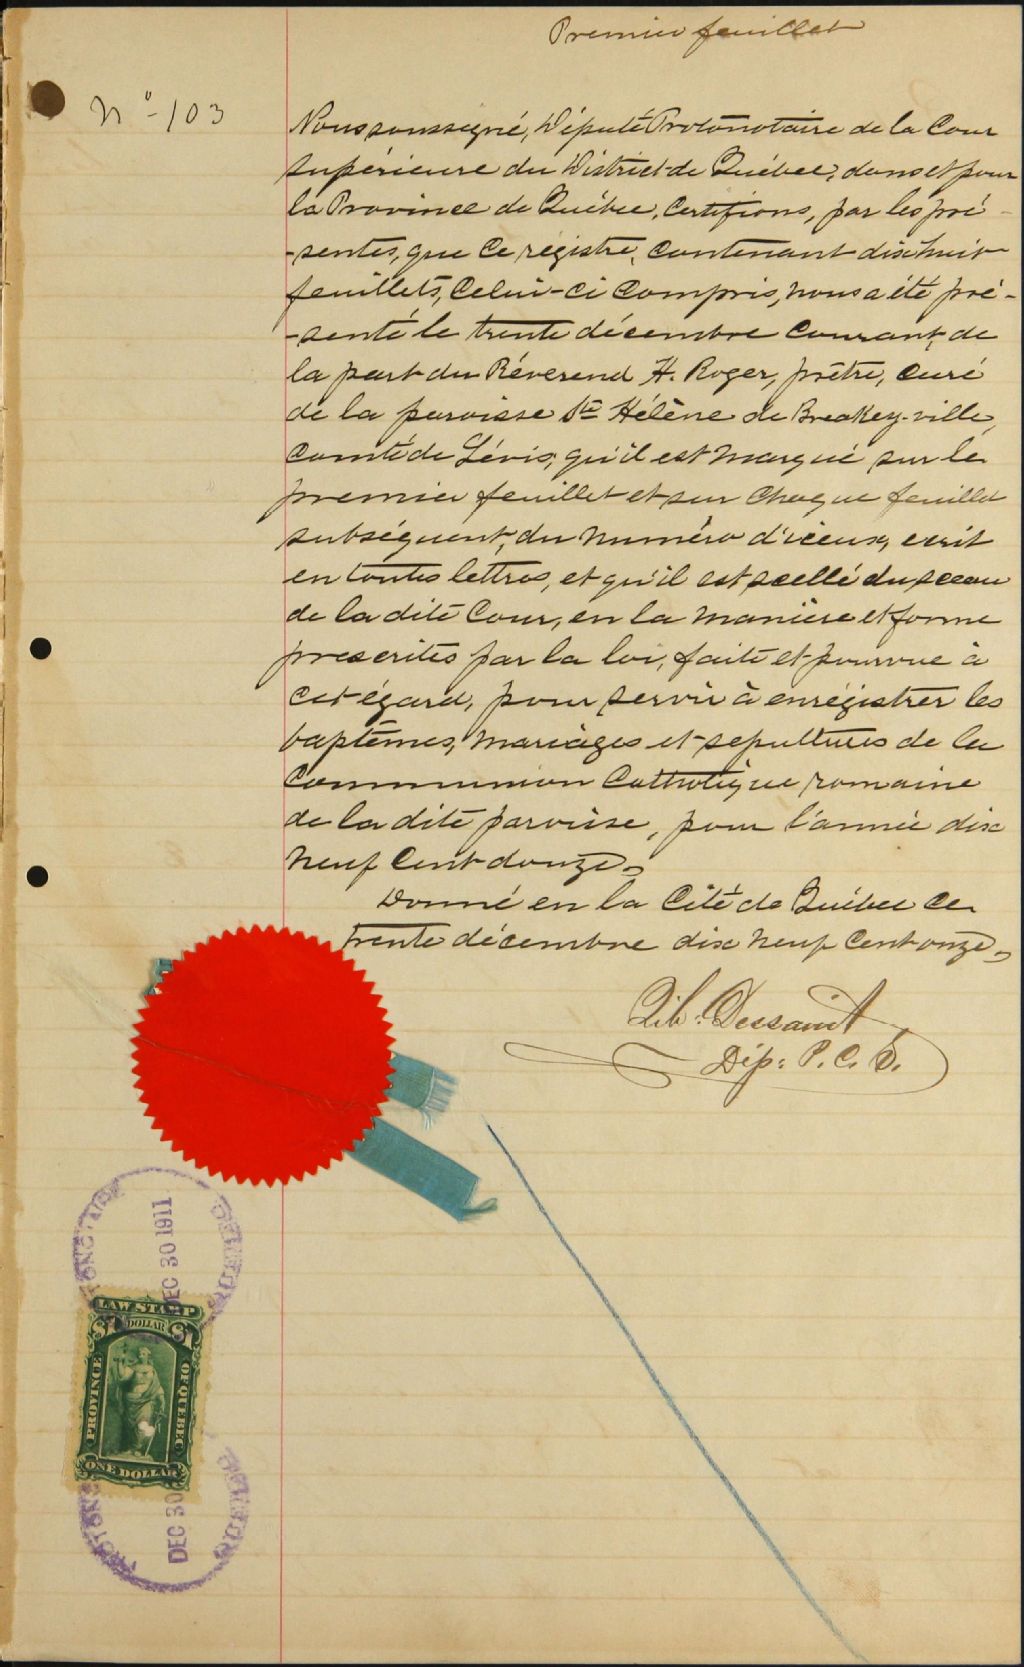 Premier feuillet
No-103
Nous soussigné, Député Protonotaire de la Cour
supérieure du District de Québec, dans et pour
la Province de Québec, Certifions, par les pré-
-sentes, que Ce régistre, Contenant dix huit
feuillets, Celui-ci Compris, nous a été pré-
-senté le trente décembre Courant, de
la part du Révérend H. Roger, prêtre, Curé
de la paroisse Ste Hélène de Breakey-ville,
Comté de Lévis, qu'il est marqué sur le
premier feuillet et sur Chaque feuillet
subséquent, du numéro d'iceux, écrit
en toutes lettres, et qu'il est scellé du sceau
de la dite Cour, en la manière et forme
prescrites par la loi, faite et pourvue à
Cet égard, pour servir à enrégistrer les
baptêmes, mariages et sepultures de la
Communion Catholique romaine
de la dite paroisse, pour l'année dix
neuf Cent douze.
Donné en la Cité de Québec Ce
trente décembre dix neuf Cent onze.
Dessaint
Dép: P. C. S.
DEC 30 1911
LAW STAMP
$1 DOLLAR $1
PROVINCE OF QUEBEC
ONE DOLLAR
DEC 30